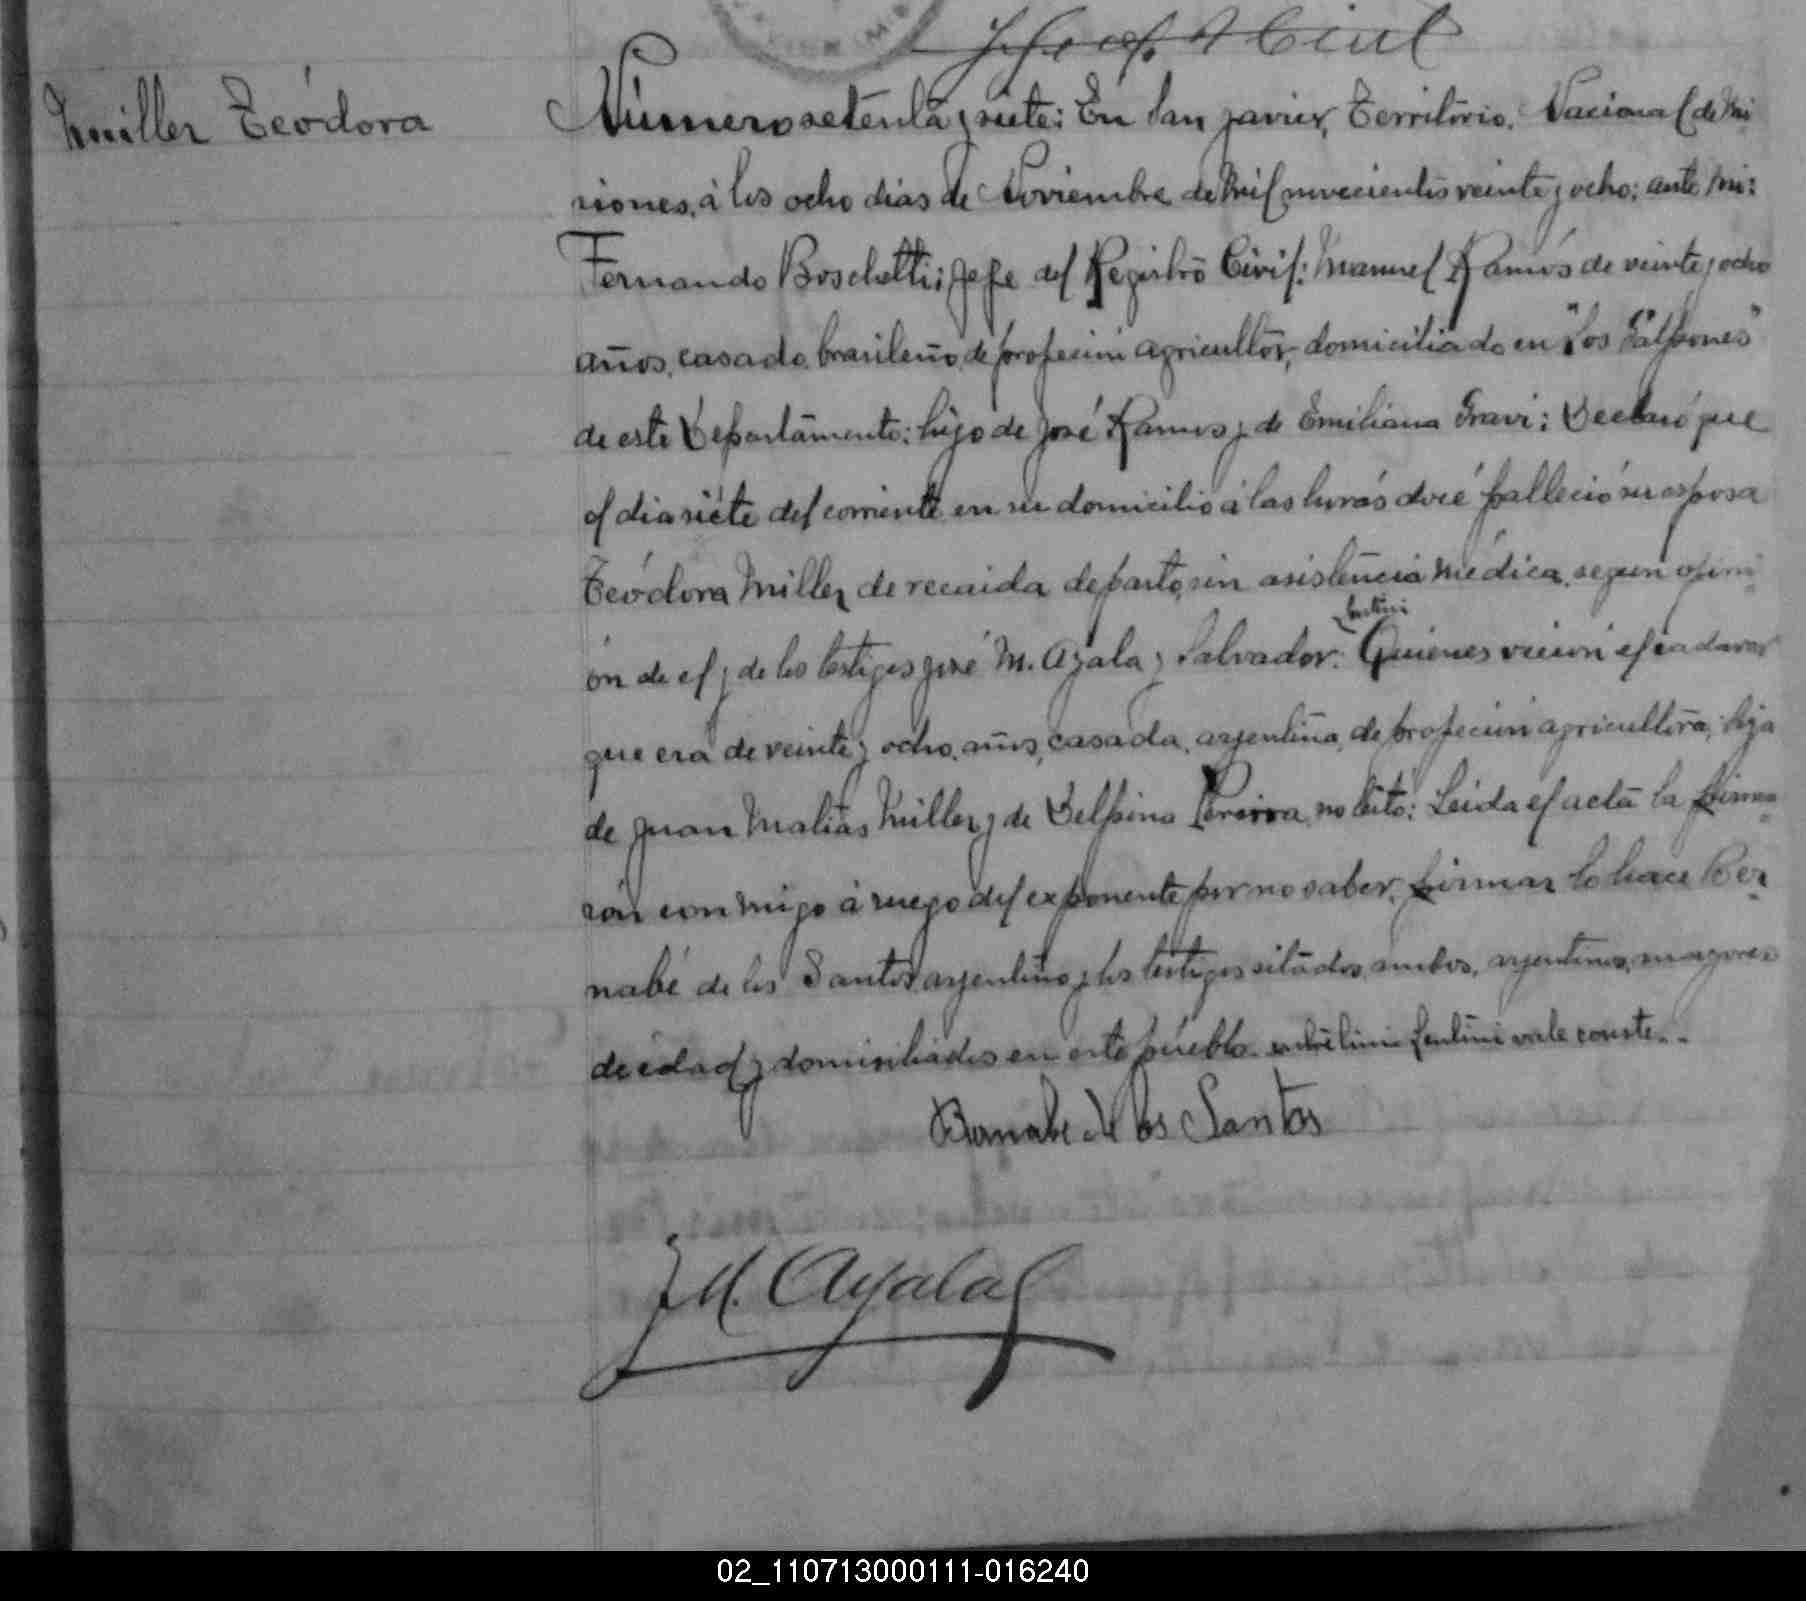 Miller Teódora
Número setenta y siete: En San Javier, Territorio. Nacional de Mi
siones, á los ocho dias de Noviembre de Mil novecientos veinte y ocho: ante mi:
Fernando Boschetti; Jefe del Registro Civil: Manuel Ramos de veinte y ocho
años, casado, brasileño, de profecion agricultor, domiciliado en "Los Galpones"
de este Departamento: hijo de José Ramos y de Emiliana Gravi: Declaró que
el dia siete del corriente en su domicilio á las horas doce falleció su esposa
Teódora Miller de recaida de parto, sin asistencia médica, segun opini-
ón de el y de los testigos José M. Ayala y Salvador. Quienes vieron el cadaver
que era de veinte y ocho años, casada, argentina, de profecion agricultora, hija
de Juan Matias Miller y de Delfina Pereira, no testó: Leida el acta la firma-
rón con migo á ruego del exponente por no saber firmar lo hace Ber-
nabé de los Santos argentino y los testigos sitados, ambos, argentinos, mayores
de edad y domisiliados en este pueblo. entre linia vale conste..
Bernabe de los Santos
J M. Ayala
02_110713000111-016240